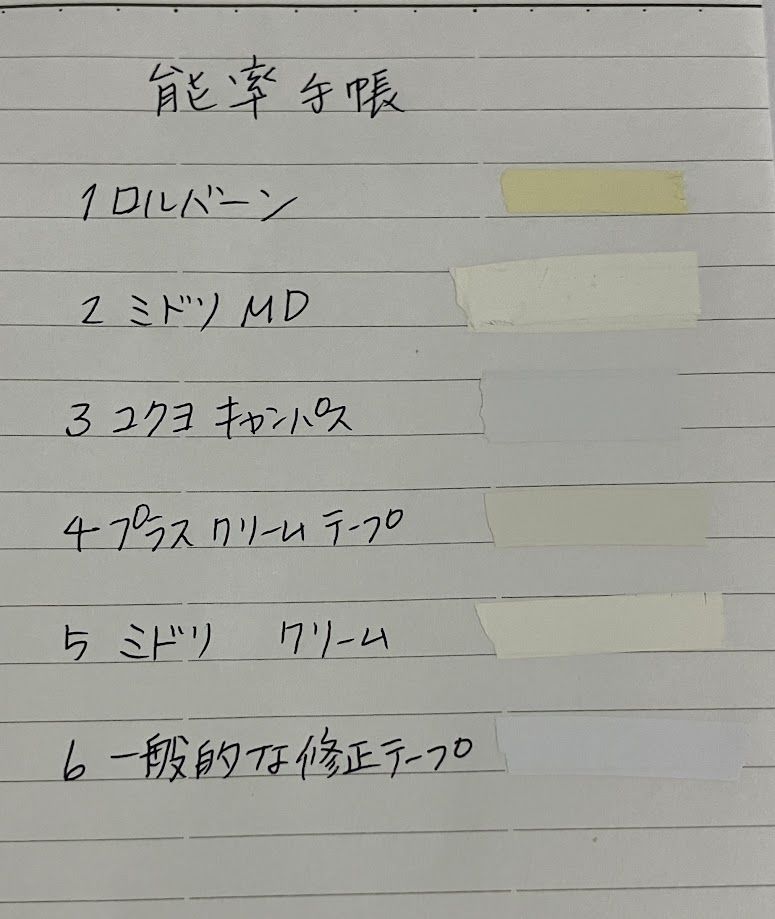 能率手帳
1 ロルバーン
2 ミドリ MD
3 コクヨ キャンパス
4 プラス クリーム テープ
5 ミドリ クリーム
6 一般的な修正テープ